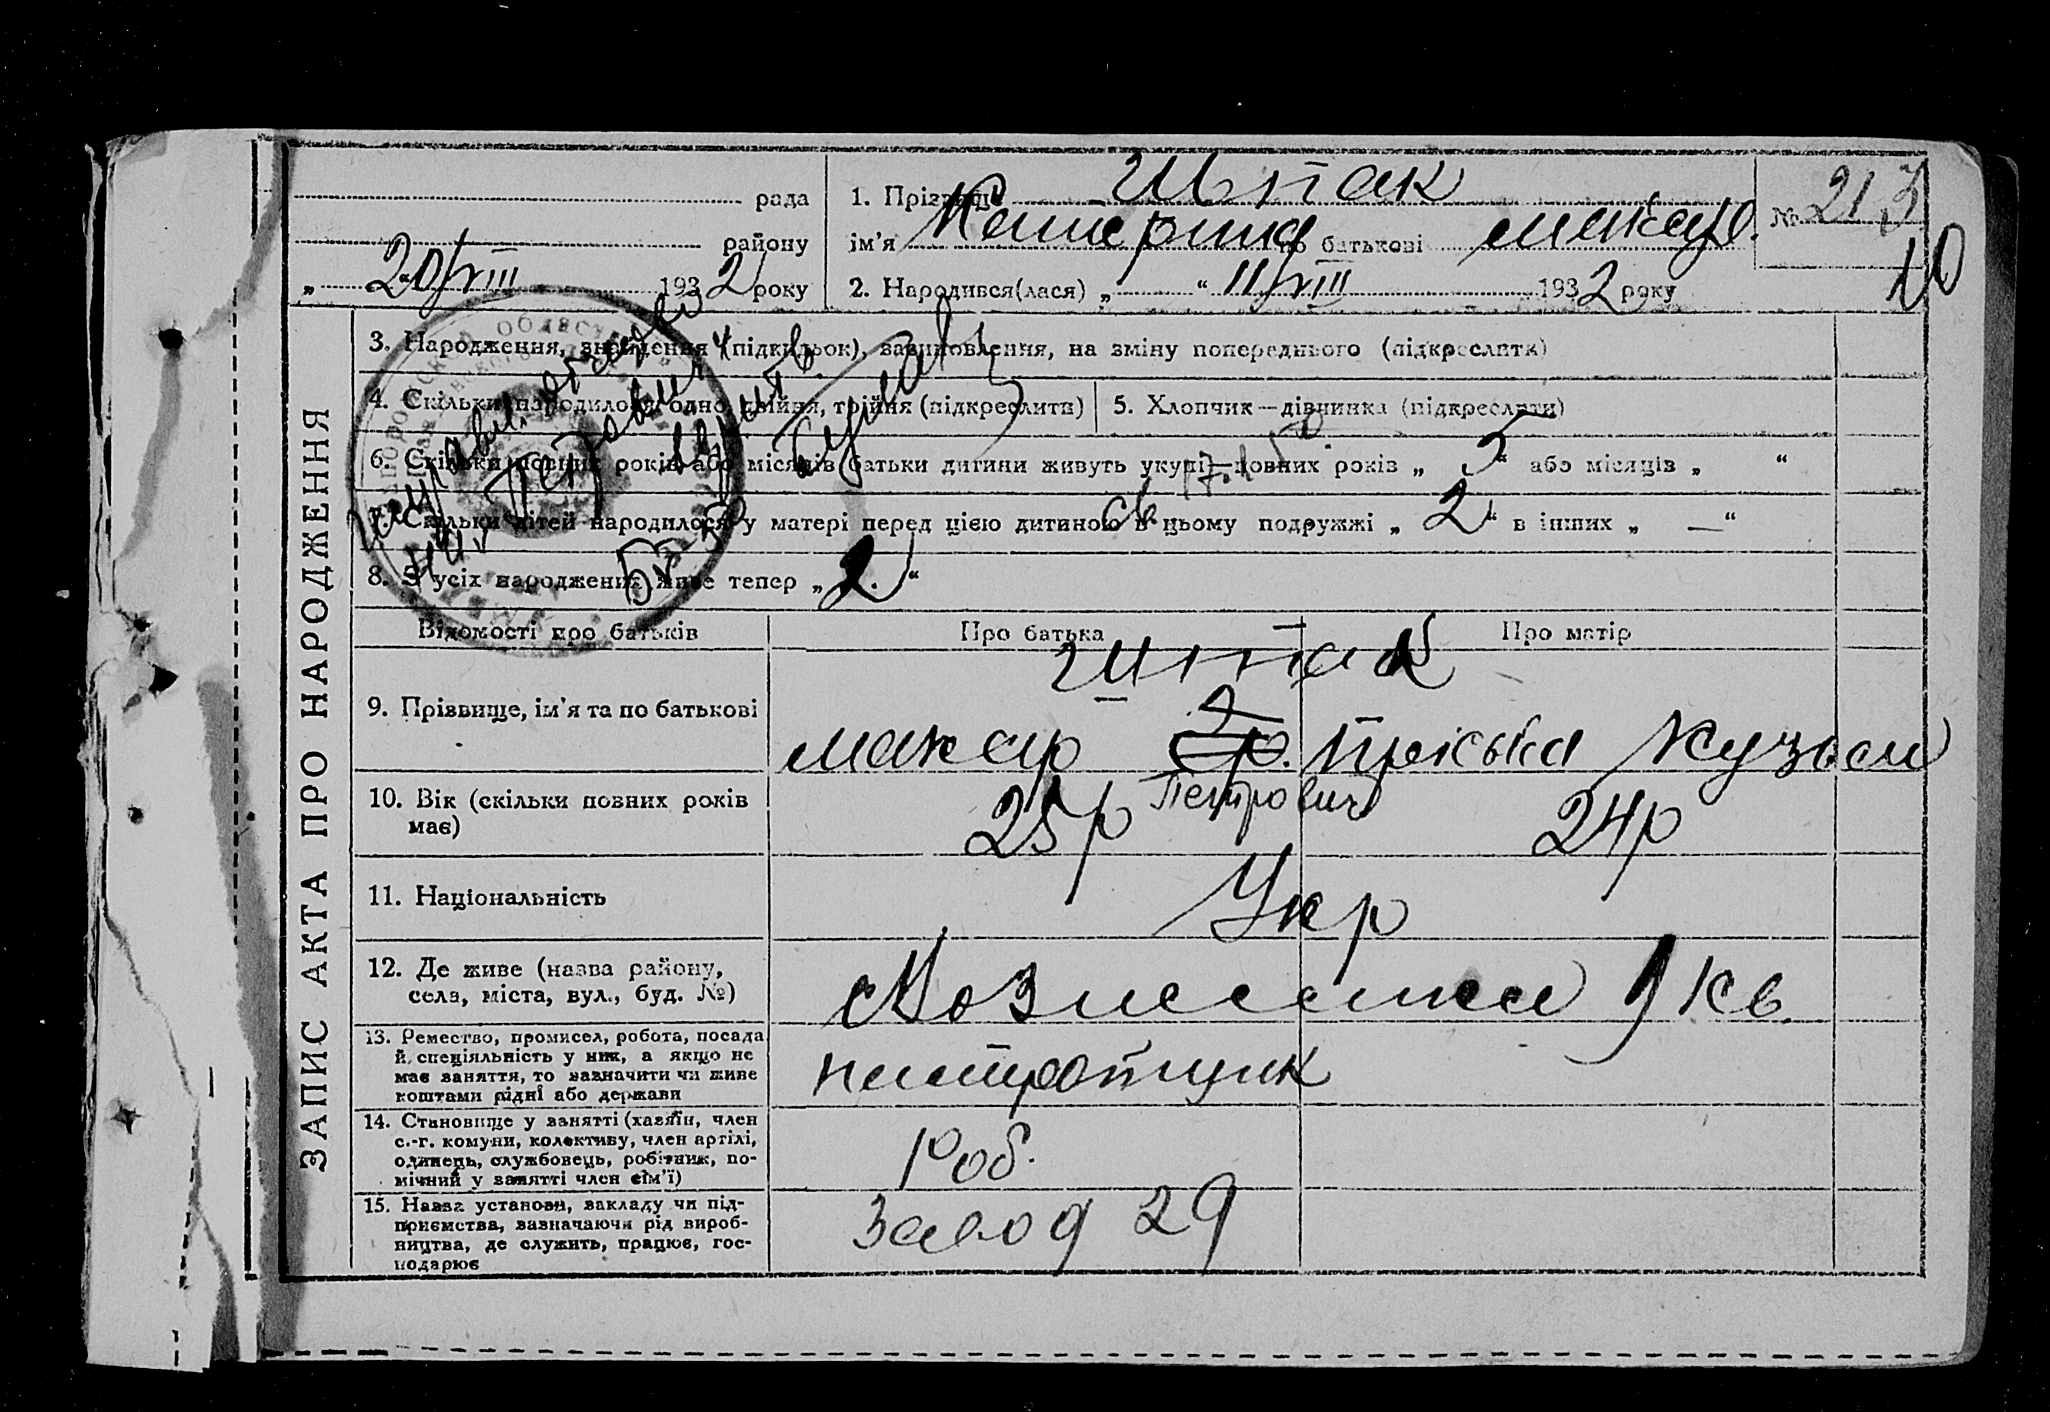 ЗАПИС АКТА ПРО НАРОДЖЕННЯ
рада
району
„ 20/VIII 1932 року
1. Прізвище Шпак
ім'я Катерина по батькові Макар.
№ 213
10
2. Народився(лася) „ “ 11/VIII 1932 року
3. Народження, знайдення (підкидьок), вавиновлення, на зміну попереднього (підкреслити)
4. Скільки народилося: одно, двійня, трійня (підкреслити)
5. Хлопчик—дівчинка (підкреслити)
6. Скільки повних років або місяців батьки дитини живуть укупі—повних років „ 5 “ або місяців „ “
7. Скільки дітей народилося у матері перед цією дитиною в цьому подружжі „ 2 “ в інших „ — “
8. З усіх народжених живе тепер „ 2. “
Відомості про батьків
Про батька
Про матір
9. Прізвище, ім'я та по батькові
Шпак
Макар
Петрович
Пріська Кузьм
10. Вік (скільки повних років має)
25р
24р
11. Національність
Укр
12. Де живе (назва району,
села, міста, вул., буд. №)
Вознесенка 9 кв.
13. Ремество, промисел, робота, посада
й спеціяльність у них, а якщо не
має заняття, то зазначити чи живе
коштами рідні або держави
14. Становище у занятті (хазяїн, член
с.-г. комуни, колективу, член артілі,
одинець, службовець, робітник, по-
мічний у занятті член сім'ї)
Роб.
15. Назва установи, закладу чи під-
приємства, зазначаючи рід вироб-
ництва, де служить, працює, гос-
подарює
Завод 29